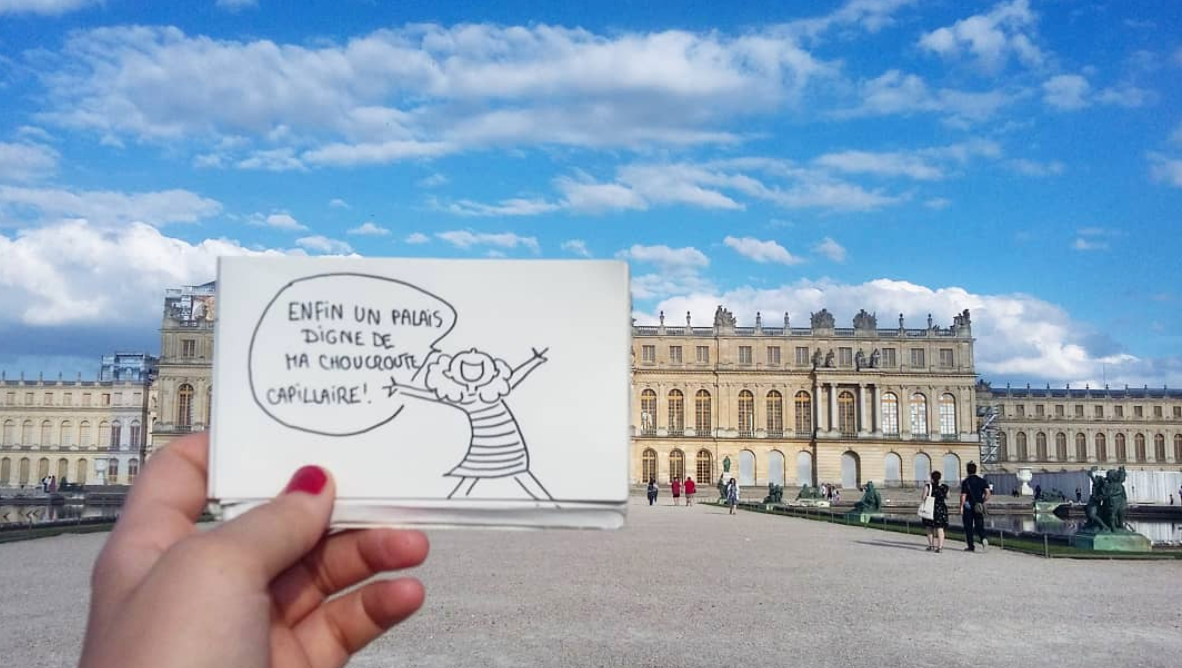 ENFIN UN PALAIS
DIGNE DE
MA CHOUCROUTE
CAPILLAIRE!